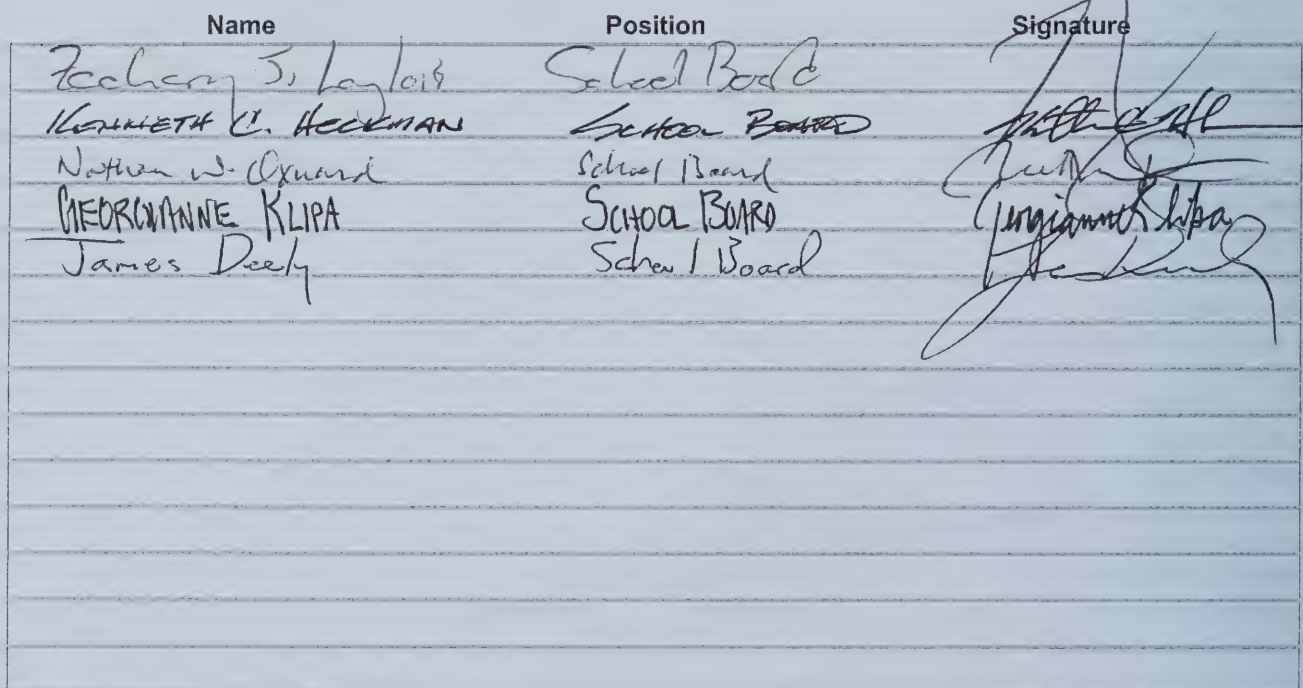 Name Position Signature
Zachary J. Langlois School Board
KENNETH C. HECKMAN SCHOOL BOARD
Nathan W. Oxnard School Board
GEORGIANNE KLIPA SCHOOL BOARD Georgianne Klipa
James Deely School Board